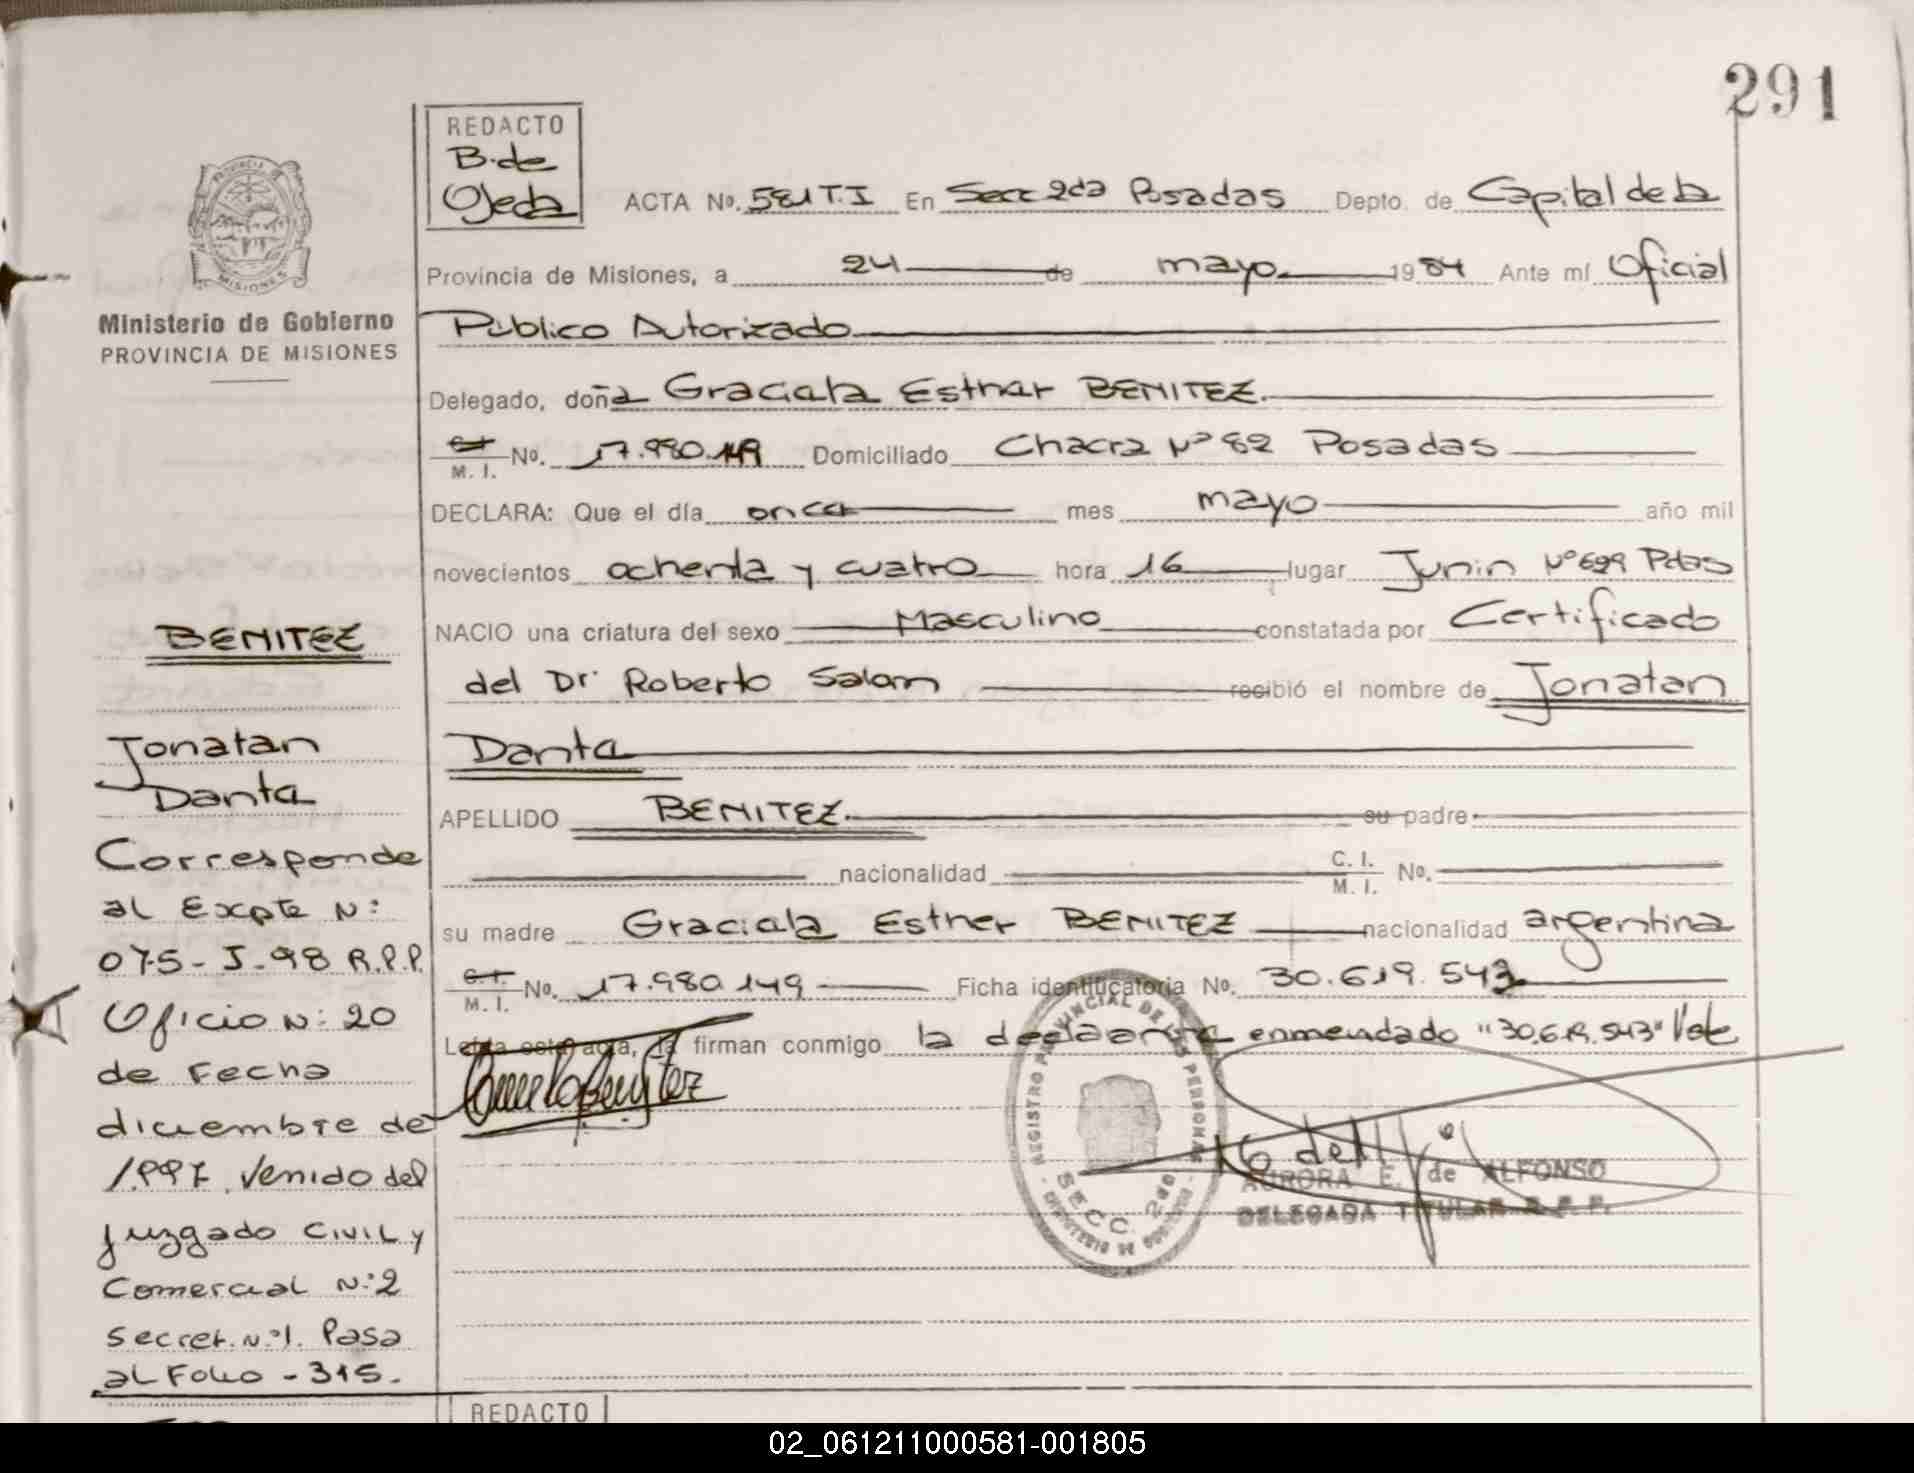 291
REDACTO
B. de
Ojeda
ACTA No. 581 T.I En Secc 2da Posadas Depto. de Capital de la
Provincia de Misiones, a 24 de mayo 1984 Ante mí Oficial
Público Autorizado
Delegado, doña Graciela Esther BENITEZ.
C.I. M. I. No. 17.980.149 Domiciliado Chacra Nº 82 Posadas
DECLARA: Que el día once mes mayo año mil
novecientos ochenta y cuatro hora 16 lugar Junin Nº 699 Pdas
NACIO una criatura del sexo Masculino constatada por Certificado
del Dr. Roberto Salom recibió el nombre de Jonatan
Dante
APELLIDO BENITEZ. su padre
nacionalidad C. I. M. I. No.
su madre Graciela Esther BENITEZ nacionalidad argentina
C.I. M. I. No. 17.980.149 Ficha identificatoria No. 30.619.543
Leída esta acta, la firman conmigo la declarante enmendado "30.619.543" Vale
REGISTRO PROVINCIAL DE LAS PERSONAS
SECC. 2da
AURORA E. de ALFONSO
DELEGADA TITULAR R.P.P.
PROVINCIA
MISIONES
Ministerio de Gobierno
PROVINCIA DE MISIONES
BENITEZ
Jonatan
Dante
Corresponde
al Excpte N:
075-J-98 R.P.P.
Oficio N: 20
de Fecha
diciembre de
1.997. Venido del
Juzgado Civil y
Comercial N:2
Secret. N:1. Pasa
al Folio - 315.
REDACTO
02_061211000581-001805